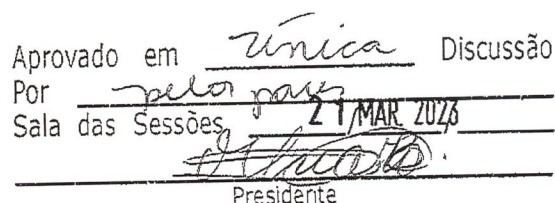 Aprovado em Única Discussão
Por pelos
Sala das Sessões 21 MAR. 2023
Presidente